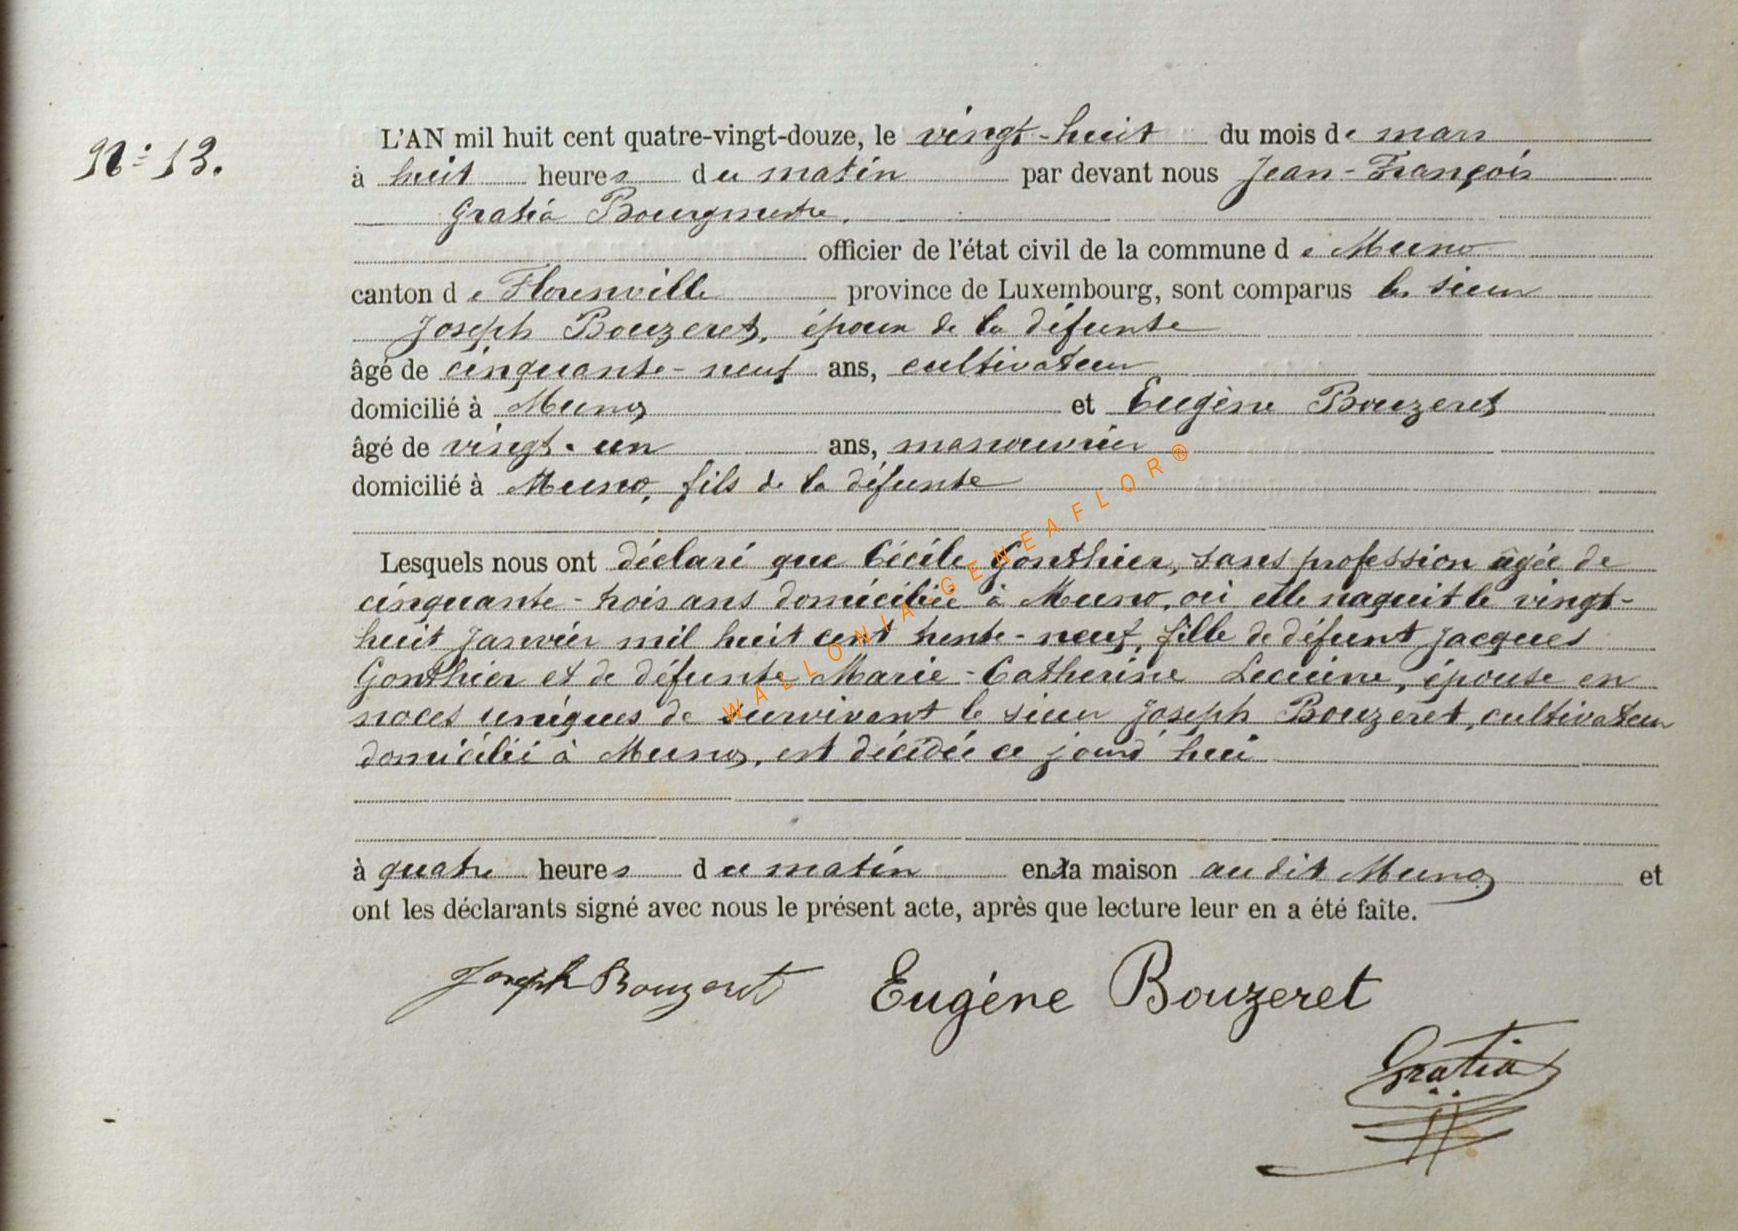 N° 13.
L'AN mil huit cent quatre-vingt-douze, le vingt-huit du mois de mars
à huit heures du matin par devant nous Jean-François
Gratia Bourgmestre.
officier de l'état civil de la commune de Muno
canton de Florenville province de Luxembourg, sont comparus le sieur
Joseph Bouzeret, époux de la défunte
âgé de cinquante-neuf ans, cultivateur
domicilié à Muno, et Eugène Bouzeret
âgé de vingt-un ans, manouvrier
domicilié à Muno, fils de la défunte
Lesquels nous ont déclaré que Cécile Gonthier, sans profession âgée de
cinquante-trois ans domiciliée à Muno, où elle naquit le vingt-
huit Janvier mil huit cent trente-neuf, fille de défunt Jacques
Gonthier et de défunte Marie-Catherine, épouse en
noces uniques de survivant le sieur Joseph Bouzeret, cultivateur
domicilié à Muno, est décédée ce jourd'hui
à quatre heures du matin en la maison au dit Muno et
ont les déclarants signé avec nous le présent acte, après que lecture leur en a été faite.
Joseph Bouzeret Eugène Bouzeret
Gratia
WALLONIA-GENEAFLOR®